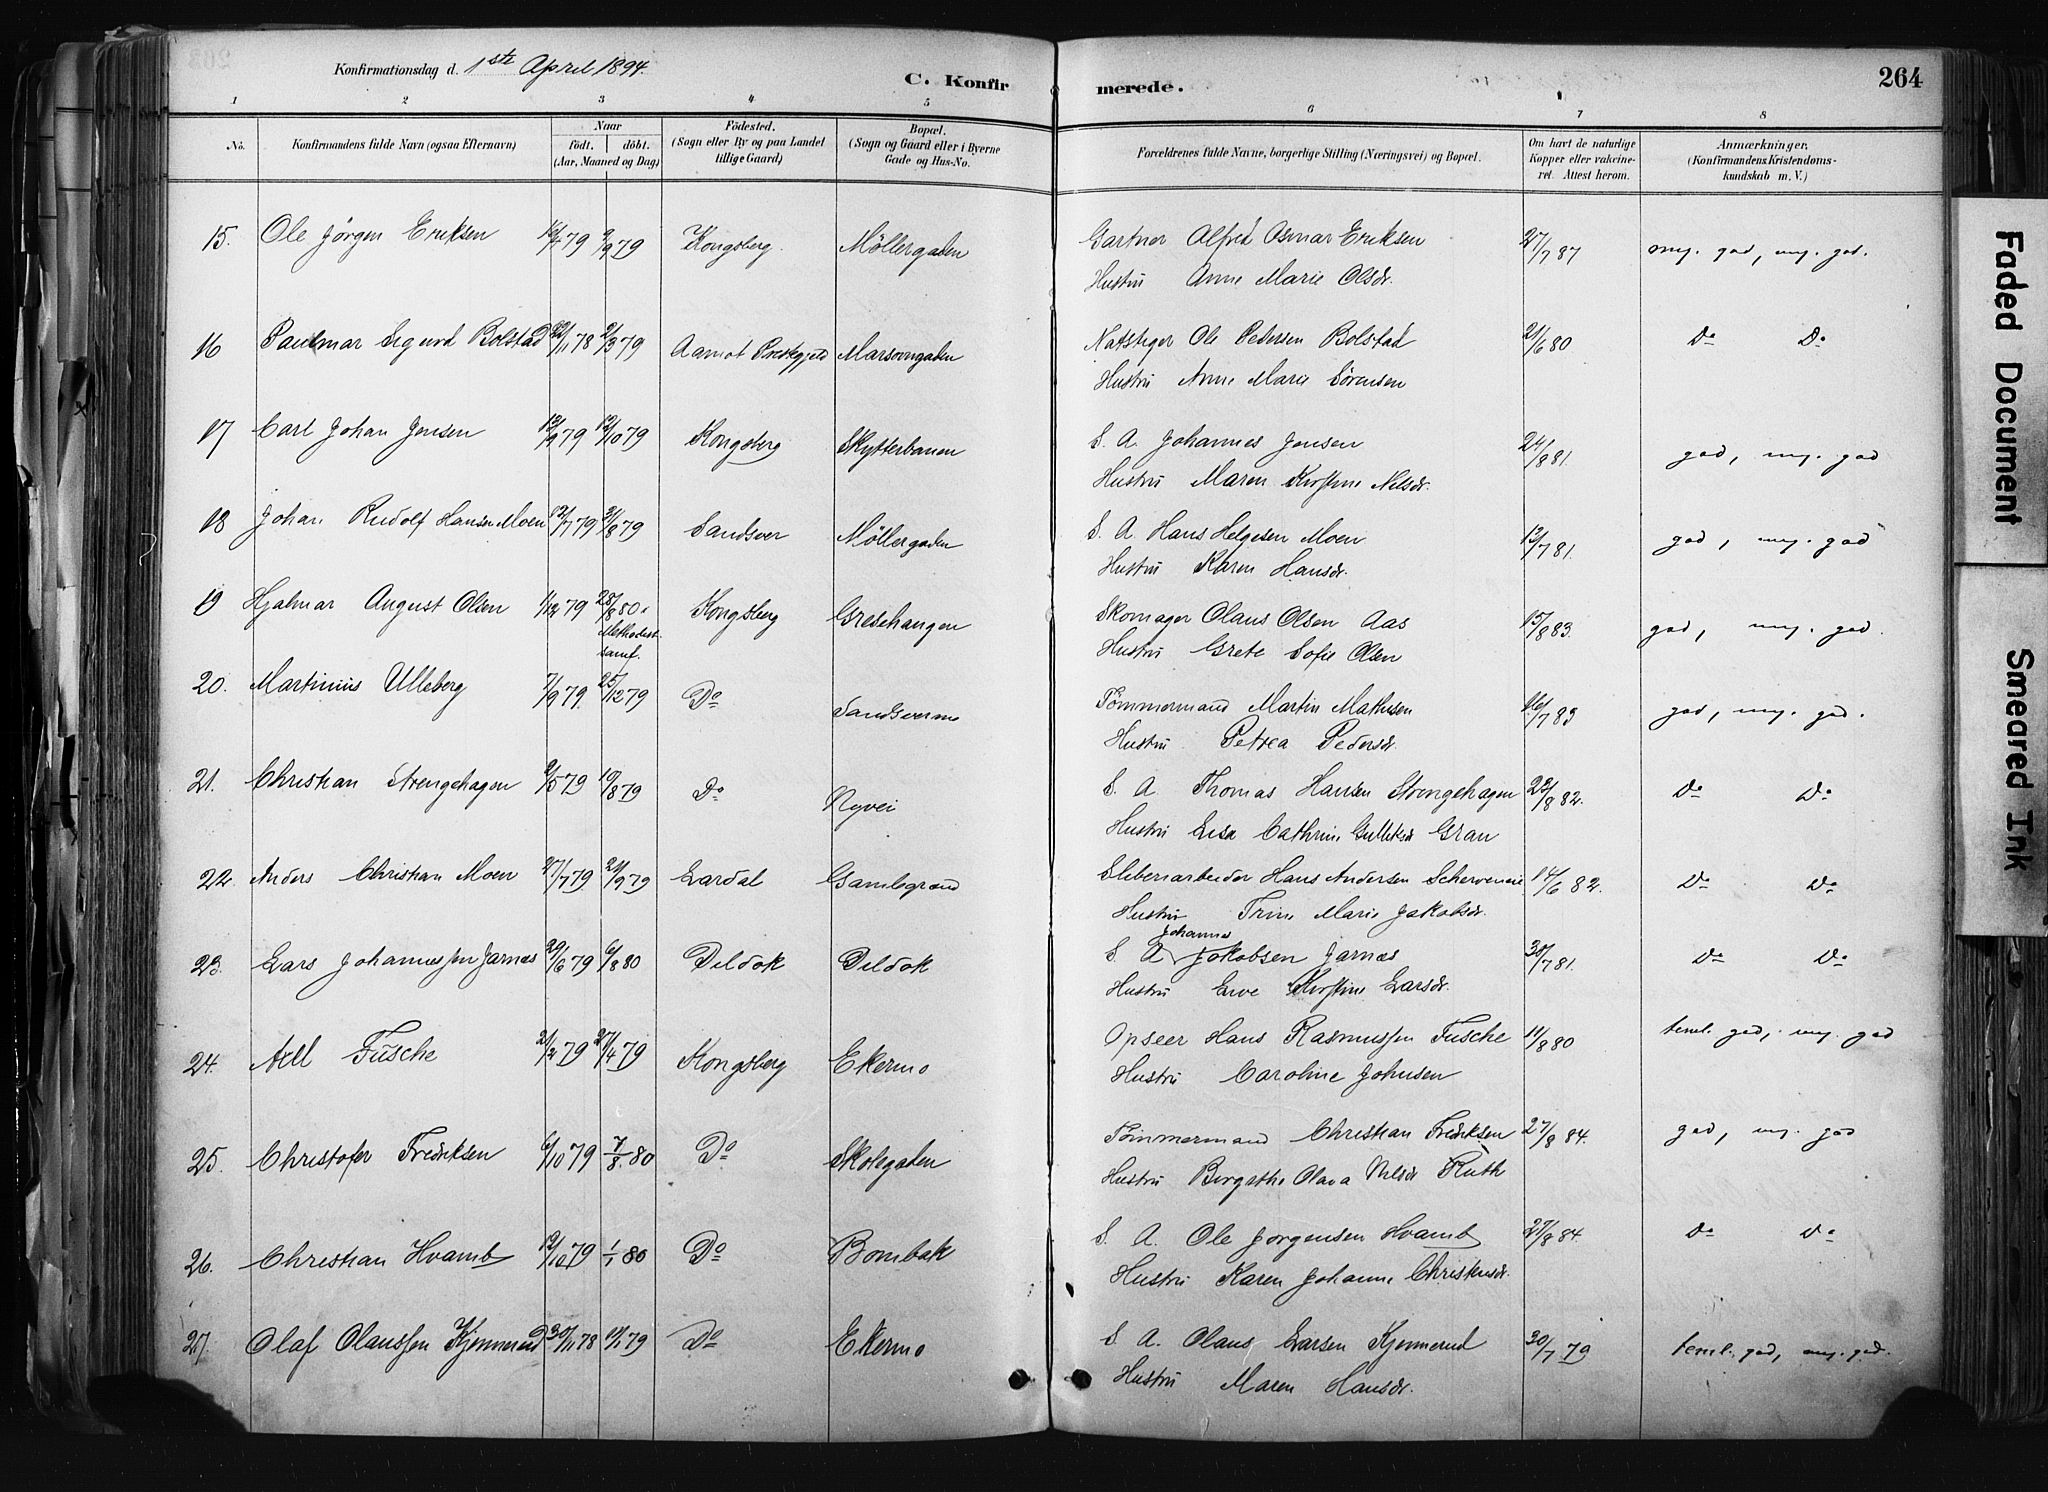 Konfirmationsdag d. 1ste April 1894.
C. Konfirmerede.
264
1 2 3 4 5 6 7 8
No. Konfirmandens fulde Navn (ogsaa Efternavn) Naar födt. döbt. (Aar, Maaned og Dag) Födested. (Sogn eller By og paa Landet tillige Gaard) Bopæl. (Sogn og Gaard eller i Byerne Gade og Hus-No. Forældrenes fulde Navne, borgerlige Stilling (Næringsvei) og Bopæl. Om havt de naturlige Kopper eller vakcineret. Attest herom. Anmærkninger. (Konfirmandens Kristendomskundskab m. V.)
15. Ole Jörgen Eriksen 79 9/9 79 Kongsberg Möllergaden Gartner Alfred Osmar Eriksen 27/7 87 mg. god, mg. god.
Hustru Anne Marie Olsdr.
16 Sigurd Bolstad 22/11 78 2/3 79 Aamot Marsovngaden Ole Pedersen Bolstad 21/6 80 Do Do
Hustru Anne Marie Sörensen
17 Carl Johan Jensen 13/9 79 12/10 79 Kongsberg Skytterbanen S. A. Johannes Jensen 24/8 81. god, mg. god
Hustru Maren Kirstine Nilsdr.
18 Johan Rudolf Hansen Moen 12/7 79 31/8 79 Sandsver Möllergaden S. A. Hans Helgesen Moen 13/7 81. god, mg. god
Hustru Karen Hansdr.
19 Hjalmar August Olsen 1/12 79 28/8 80 Methodist samf. Kongsberg Gresehaugen Skomager Olaus Olsen Aas 15/8 83. god, mg. god.
Hustru Grete Sofie Olsen
20. Martinius Ulleberg 7/9 79. 25/12 79 Do Sandsvermo Tömmermand Martin Mathisen 16/7 83 god, mg. god.
Hustru Petrea Pedersdr.
21. Christian Strengehagen 2/5 79 10/8 79 Do Nyvei S. A. Thomas Hansen Strengehagen 22/8 82. Do Do
Hustru Lisa Cathrine Gulliksdr Gran
22. Anders Christian Moen 27/7 79 21/9 79 Lardal Gamlegrend Hans Andersen 14/6 82. Do Do
Hustru Trine Marie Jakobsdr.
23. Lars Johannessen Jarnæs 29/6 79 6/8 80 Deldok Deldok S. A. Johannes Jakobsen Jarnæs 30/7 81. Do Do
Hustru Kirstine Larsdr.
24. Axel Füsche 21/2 79 27/4 79 Kongsberg Ekermo Opseer Hans Rasmussen Füsche 11/8 80 teml. god, mg. god
Hustru Caroline Johnsen
25. Christofer Fredriksen 6/10 79 7/8. 80 Do Skolegaden Tömmermand Christian Fredriksen 27/8 84. god, mg. god
Hustru Birgitthe Olava Nilsdr Ruth
26. Christian Hvamb 12/10 79 1/1 80 Do Bombak S. A. Ole Jörgensen Hvamb 27/8 84. Do Do
Hustru Karen Johanne Christensdr.
27. Olaf Olaussen Kjennerud 30/11 78 79 Do Ekermo S. A. Olaus Larsen Kjennerud 30/7 79 teml. god, mg. god.
Hustru Maren Hansdr.
Faded Document
Smeared Ink